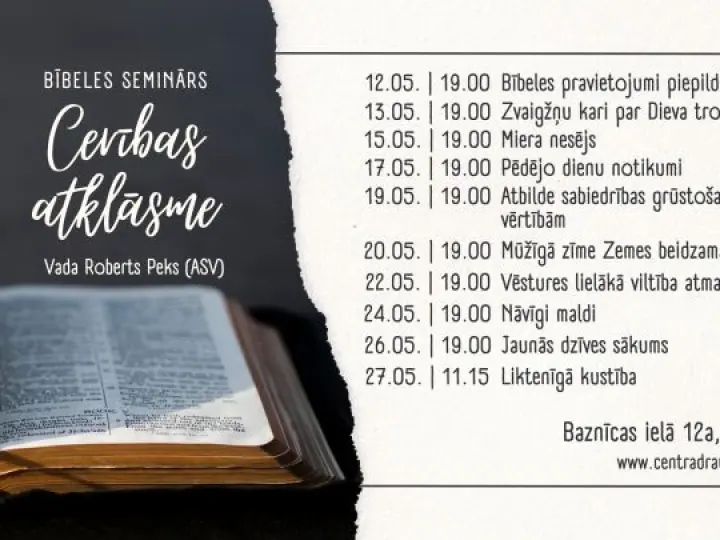 BĪBELES SEMINĀRS
Cerības
atklāsme
Vada Roberts Peks (ASV)
12.05. | 19.00 Bībeles pravietojumi piepild
13.05. | 19.00 Zvaigžņu kari par Dieva tro
15.05. | 19.00 Miera nesējs
17.05. | 19.00 Pēdējo dienu notikumi
19.05. | 19.00 Atbilde sabiedrības grūstoša
vērtībām
20.05. | 19.00 Mūžīgā zīme Zemes beidzam
22.05. | 19.00 Vēstures lielākā viltība atma
24.05. | 19.00 Nāvīgi maldi
26.05. | 19.00 Jaunās dzīves sākums
27.05. | 11.15 Liktenīgā kustība
Baznīcas ielā 12a,
www.centradra